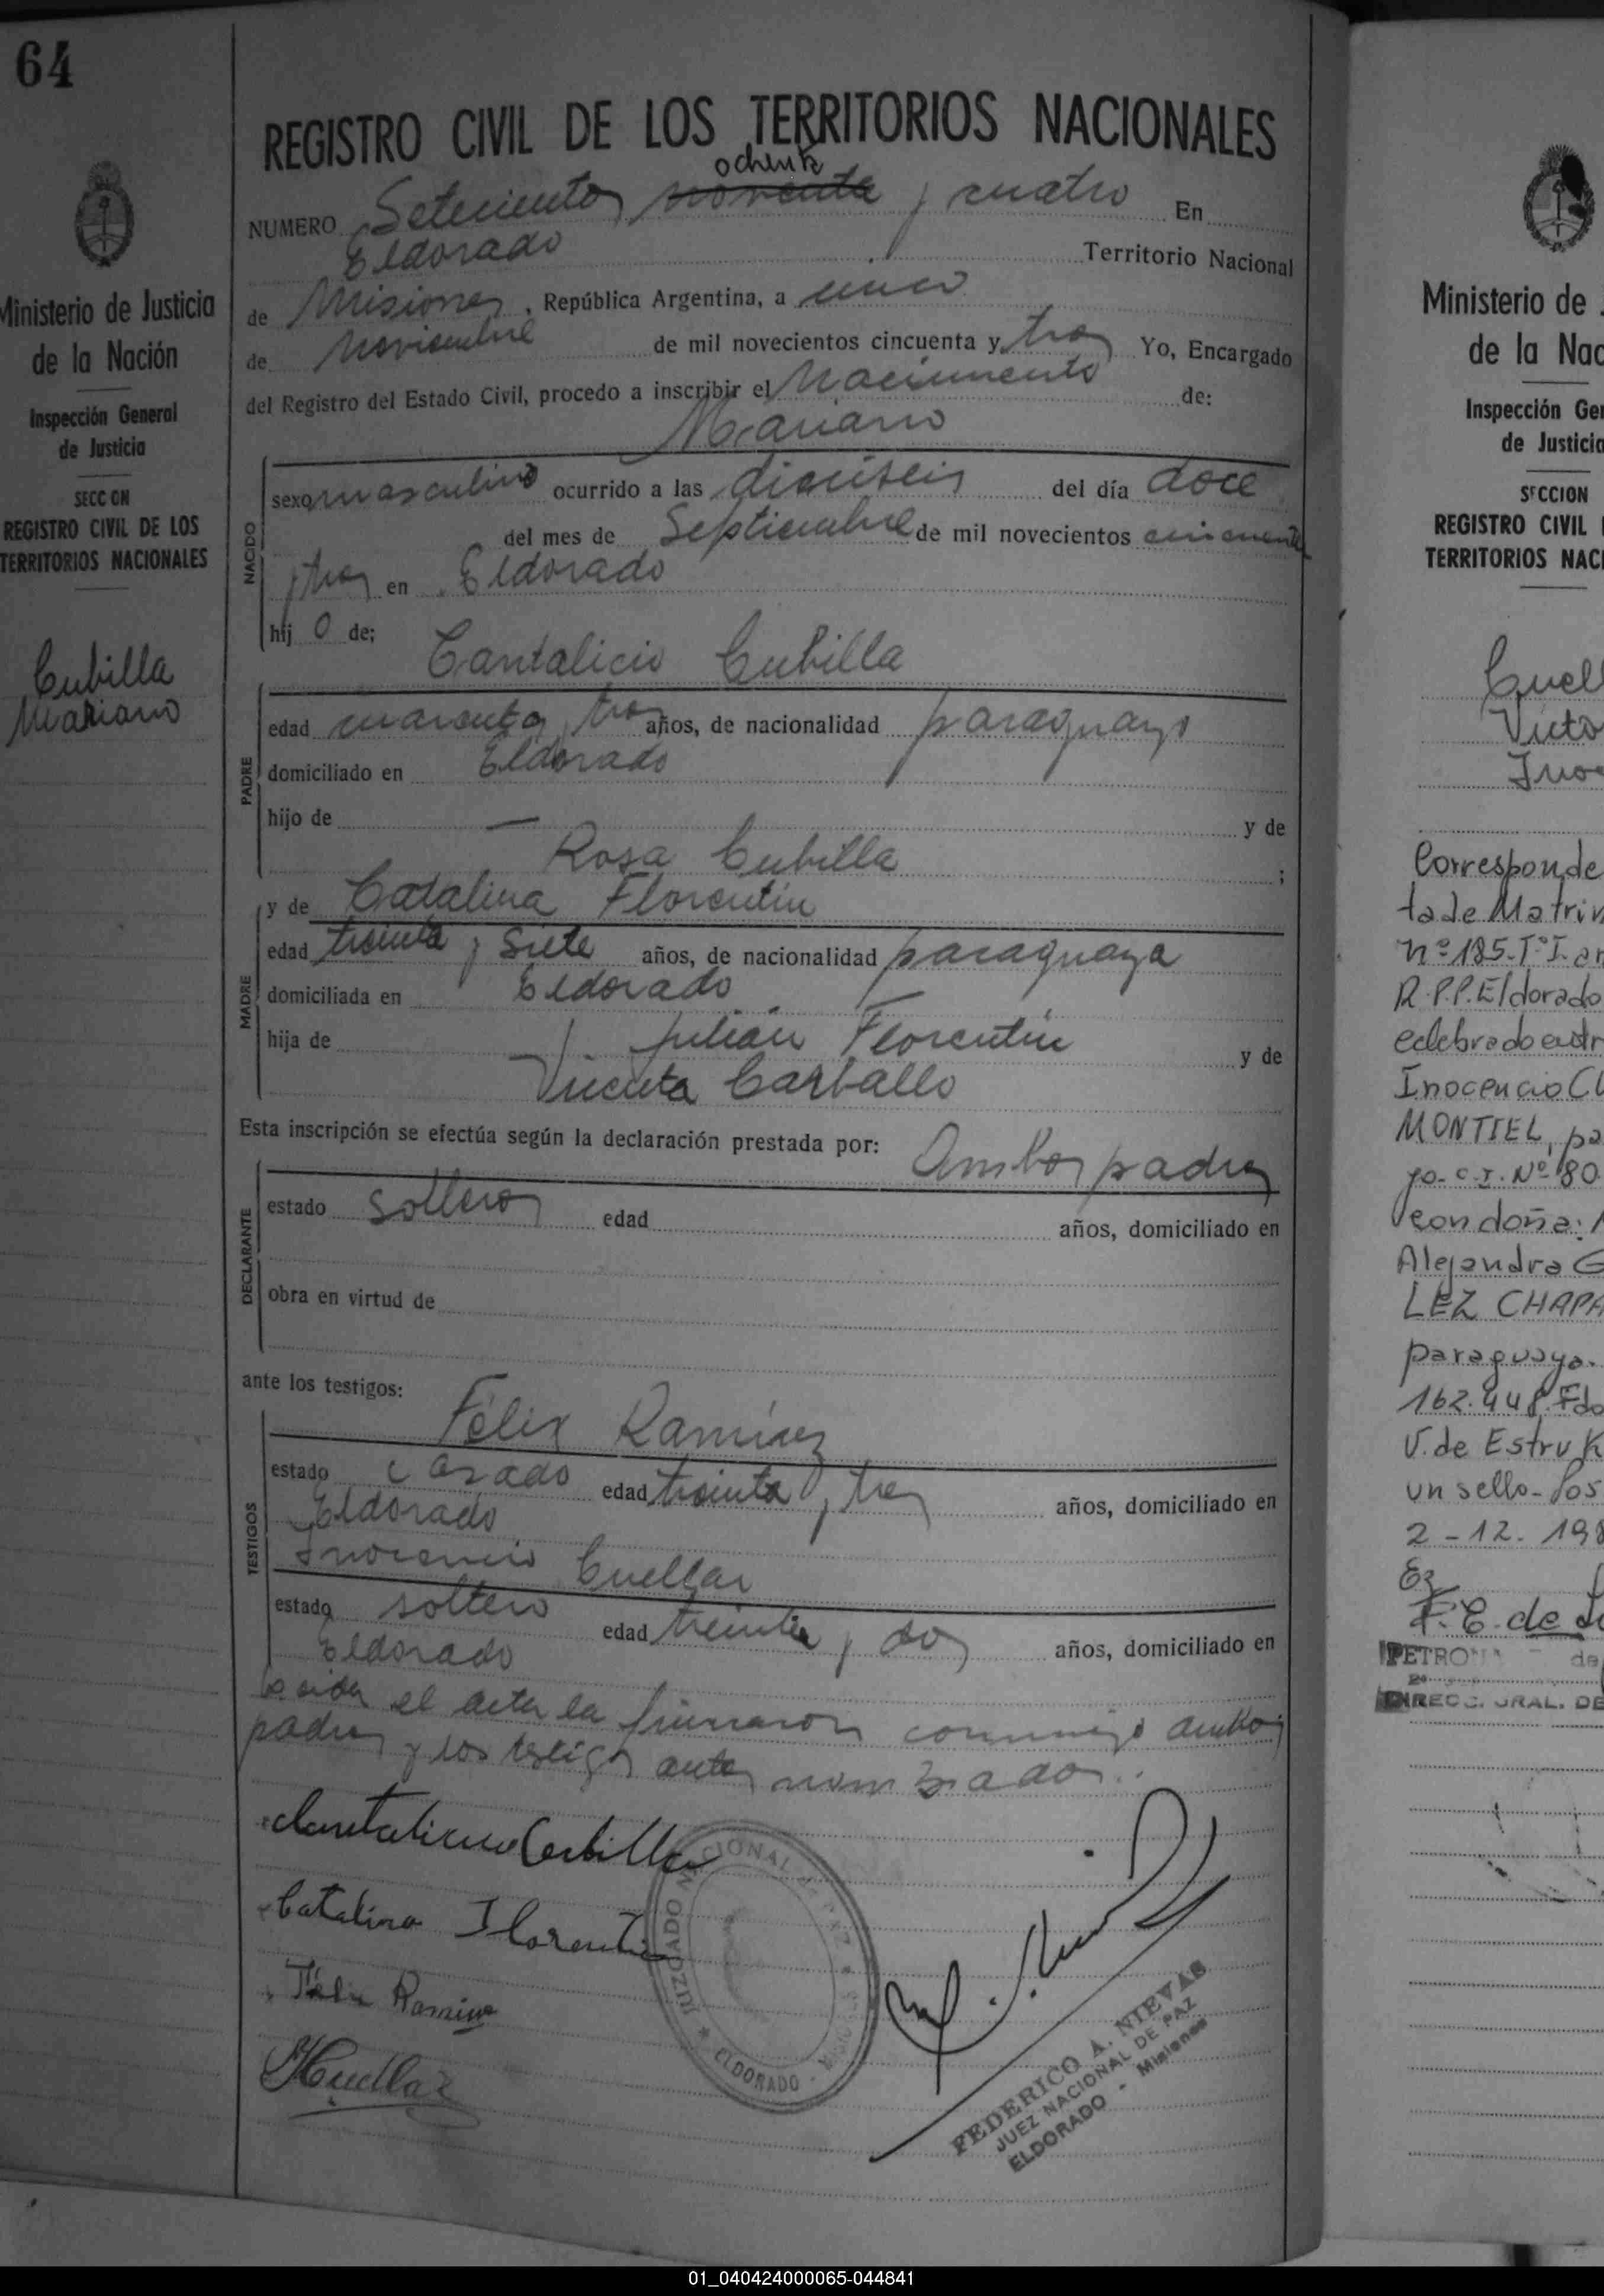 64
Ministerio de Justicia
de la Nación
Inspección General
de Justicia
SECCION
REGISTRO CIVIL DE LOS
TERRITORIOS NACIONALES
Cubilla
Mariano
REGISTRO CIVIL DE LOS TERRITORIOS NACIONALES
ochenta
NUMERO Setecientos noventa y cuatro En
Eldorado Territorio Nacional
de Misiones, República Argentina, a cinco
de Noviembre de mil novecientos cincuenta y tres Yo, Encargado
del Registro del Estado Civil, procedo a inscribir el Nacimiento de:
Mariano
NACIDO
sexo masculino ocurrido a las dieciseis del día doce
del mes de Septiembre de mil novecientos cincuenta
y tres en Eldorado
hij o de;
Cantalicio Cubilla
PADRE
edad cuarenta y tres años, de nacionalidad paraguayo
domiciliado en Eldorado
hijo de — y de
Rosa Cubilla ;
y de Catalina Florentín
MADRE
edad treinta y siete años, de nacionalidad paraguaya
domiciliada en Eldorado
hija de Julián Florentín y de
Vicenta Carballo
Esta inscripción se efectúa según la declaración prestada por: Ambos padres
DECLARANTE
estado solteros edad años, domiciliado en
obra en virtud de
ante los testigos:
Félix Ramírez
TESTIGOS
estado casado edad treinta y tres años, domiciliado en
Eldorado
Inocencio Cuellar
estado soltero edad treinta y dos años, domiciliado en
Eldorado
Leida el acta la firmaron conmigo ambos
padres y los testigos antes nombrados.
Cantalicio Cubilla
Catalina Florentin
Félix Ramirez
Cuellar
JUZGADO NACIONAL DE PAZ
ELDORADO - MISIONES
FEDERICO A. NIEVAS
JUEZ NACIONAL DE PAZ
ELDORADO - Misiones
Ministerio de
de la Nac
Inspección Ge
de Justicia
SECCION
REGISTRO CIVIL
TERRITORIOS NAC
Cuell
Victo
Ino
Corresponde
ta de Matrim
Nº 185-Tº I. a
R.P.P. Eldorado
celebrado entr
Inocencio C
MONTIEL, pa
yo- C.I. Nº 80
con doña:
Alejandra G
LEZ CHAPA
paraguaya.
162.448. Fdo
V. de Estruk
un sello- Pos
2-12. 198
F.E. de
PETRO de
DIRECC. GRAL. DE
01_040424000065-044841